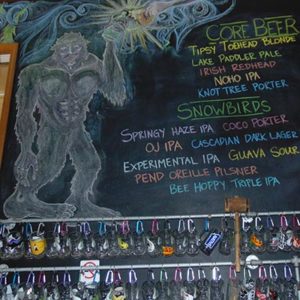 CORE BEER
TIPSY TOEHEAD BLONDE
LAKE PADDLER PALE
IRISH REDHEAD
NOHO IPA
KNOT TREE PORTER
SNOWBIRDS
SPRINGY HAZE IPA COCO PORTER
OJ IPA CASCADIAN DARK LAGER
EXPERIMENTAL IPA GUAVA SOUR
PEND OREILLE PILSNER
BEE HOPPY TRIPLE IPA